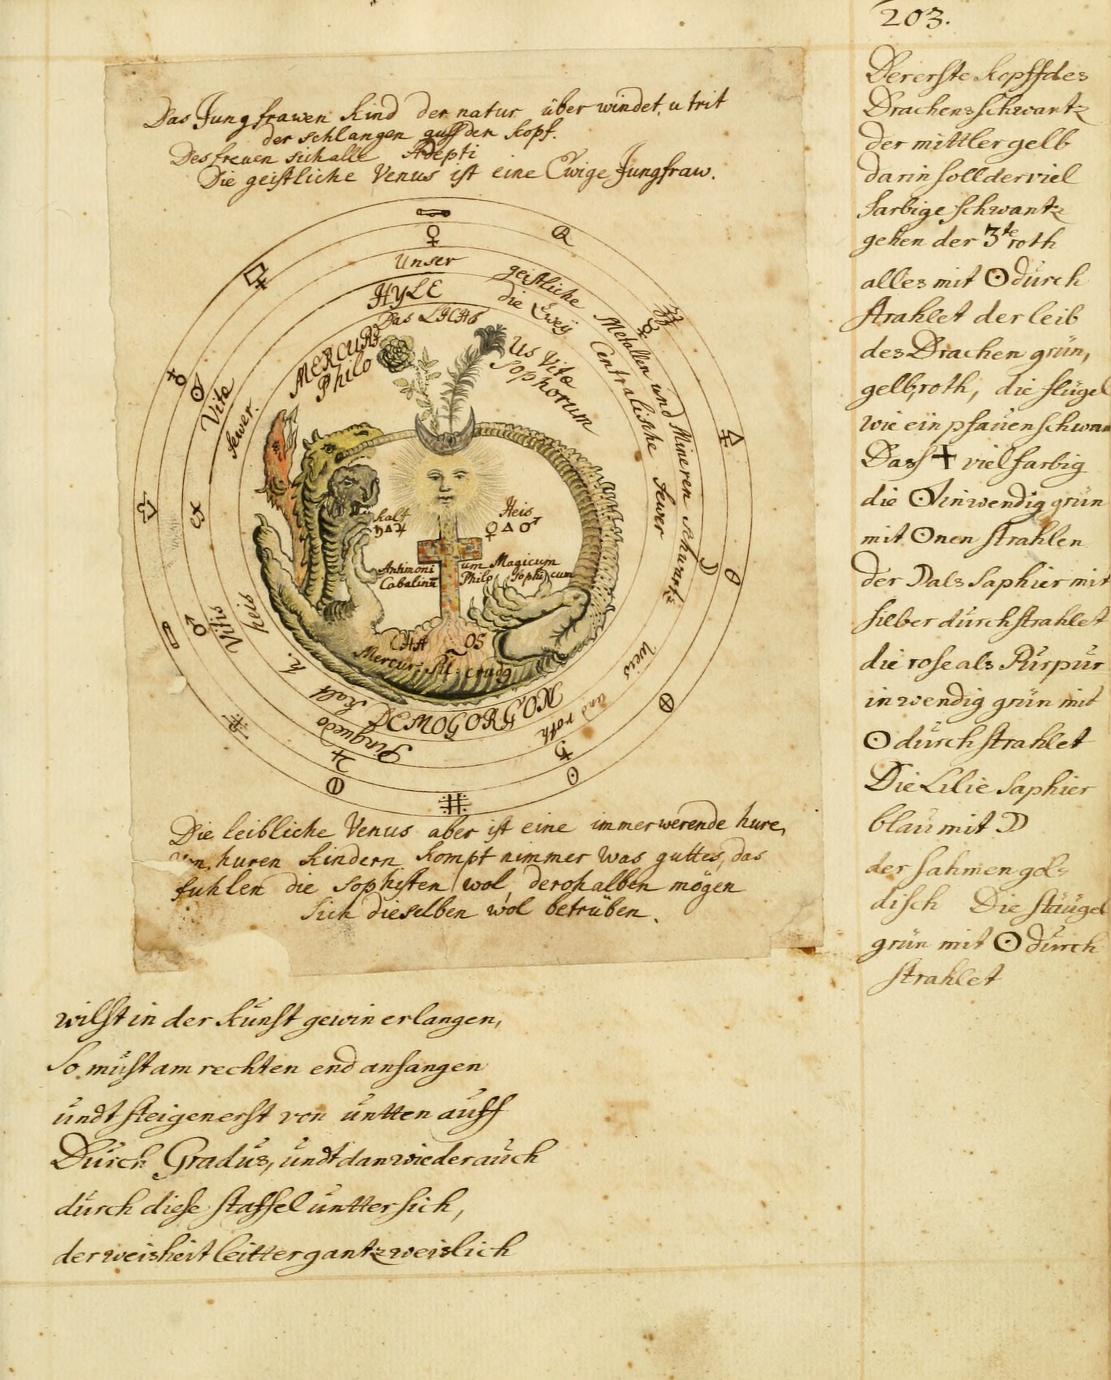 203.
Das Jungfrawen Kind der natur über windet, u trit
der schlangen auff den Kopf.
Des freuen sich alle Adepti
Die geistliche Venus ist eine Ewige Jungfraw.
Unser geistliche Metallen und Mineren
HYLE die Zweÿ Centralische fewer
Das LICHS
MERCURI Philo
us Vitæ Sophorum
Vitæ
fewer.
ex
Vitis
heis
Kalt
♄ △ ♃
Heis
♀ △ ♂
Antimoni um Magicum
Cabalinu Philo Sophicum
CHA OS
Mercur: Sil: crudg
DEMOGORGNO,
Kalt
Pinguedo
weis
und roth
Die leibliche Venus aber ist eine immerwerende hure,
huren Kindern kompt nimmer was guttes, das
fuhlen die Sophisten wol, derohalben mögen
sich dieselben wol betrüben.
wilst in der Kunst gewin erlangen,
So must am rechten end anfangen
undt steigen erst von untten auff
Durch Gradus, undt dan wieder auch
durch diese staffel untter sich,
der weisheit leitter gantz weislich
Der erste Kopff des
Drachens schwartz
der mittler gelb
darin soll der viel
farbige schwantz
gehen der 3te roth
alles mit ☉ durch
strahlet der leib
des Drachen grün,
gelb, roth, die flügel
wie ein pfauen schwan
Dass ✝ vielfarbig
die inwendig grün
mit ☉nen strahlen
der ☽ als Saphier mit
silber durchstrahlet
die rose als Purpur
inwendig grün mit
☉ durchstrahlet
Die Lilie Saphier
blau mit ☽
der sahmen gol-
disch Die stängel
grün mit ☉ durch
strahlet